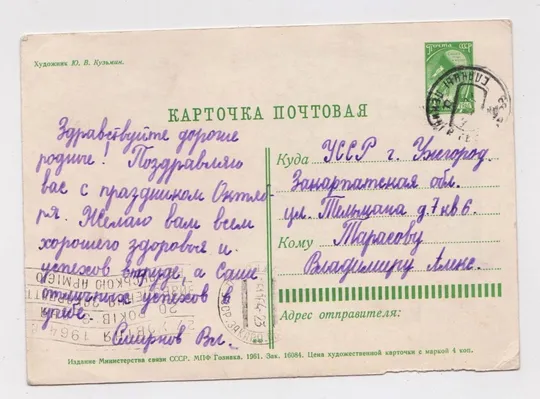 Художник Ю. В. Кузьмин.
КАРТОЧКА ПОЧТОВАЯ
Здравствуйте дорогие
родные! Поздравляю
вас с праздником Октяб
ря. Желаю вам всем
хорошего здоровья и
успехов в труде, а Саше
отличных успехов в
учебе.
Смирнов Вл.
Куда УССР г. Ужгород
Закарпатская обл.
ул. Тельмана д.7 кв 6.
Кому Тарасову
Владимиру Алекс.
Адрес отправителя:
20 РОКІВ
1964
Издание Министерства связи СССР. МПФ Гознака. 1961. Зак. 16084. Цена художественной карточки с маркой 4 коп.